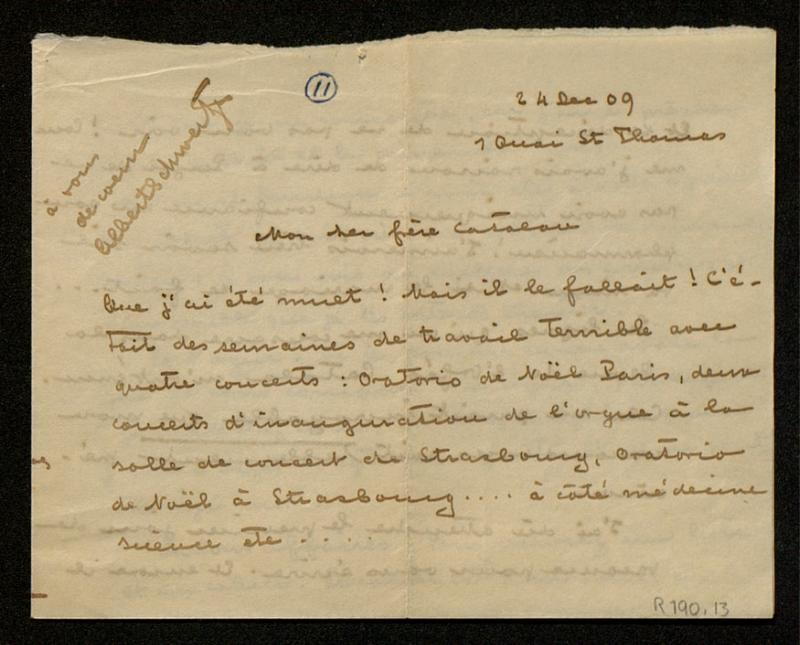 11
24 Dec 09
1 Quai St Thomas
à vous
de cœur
Albert Schweitzer
Mon cher frère Catalan
Que j'ai été muet ! Mais il le fallait ! C'é-
tait des semaines de travail terrible avec
quatre concerts : Oratorio de Noël Paris, deux
concerts d'inauguration de l'orgue à la
salle de concert de Strasbourg, Oratorio
de Noël à Strasbourg .... à côté médecine
science etc . . . .
R 190.13